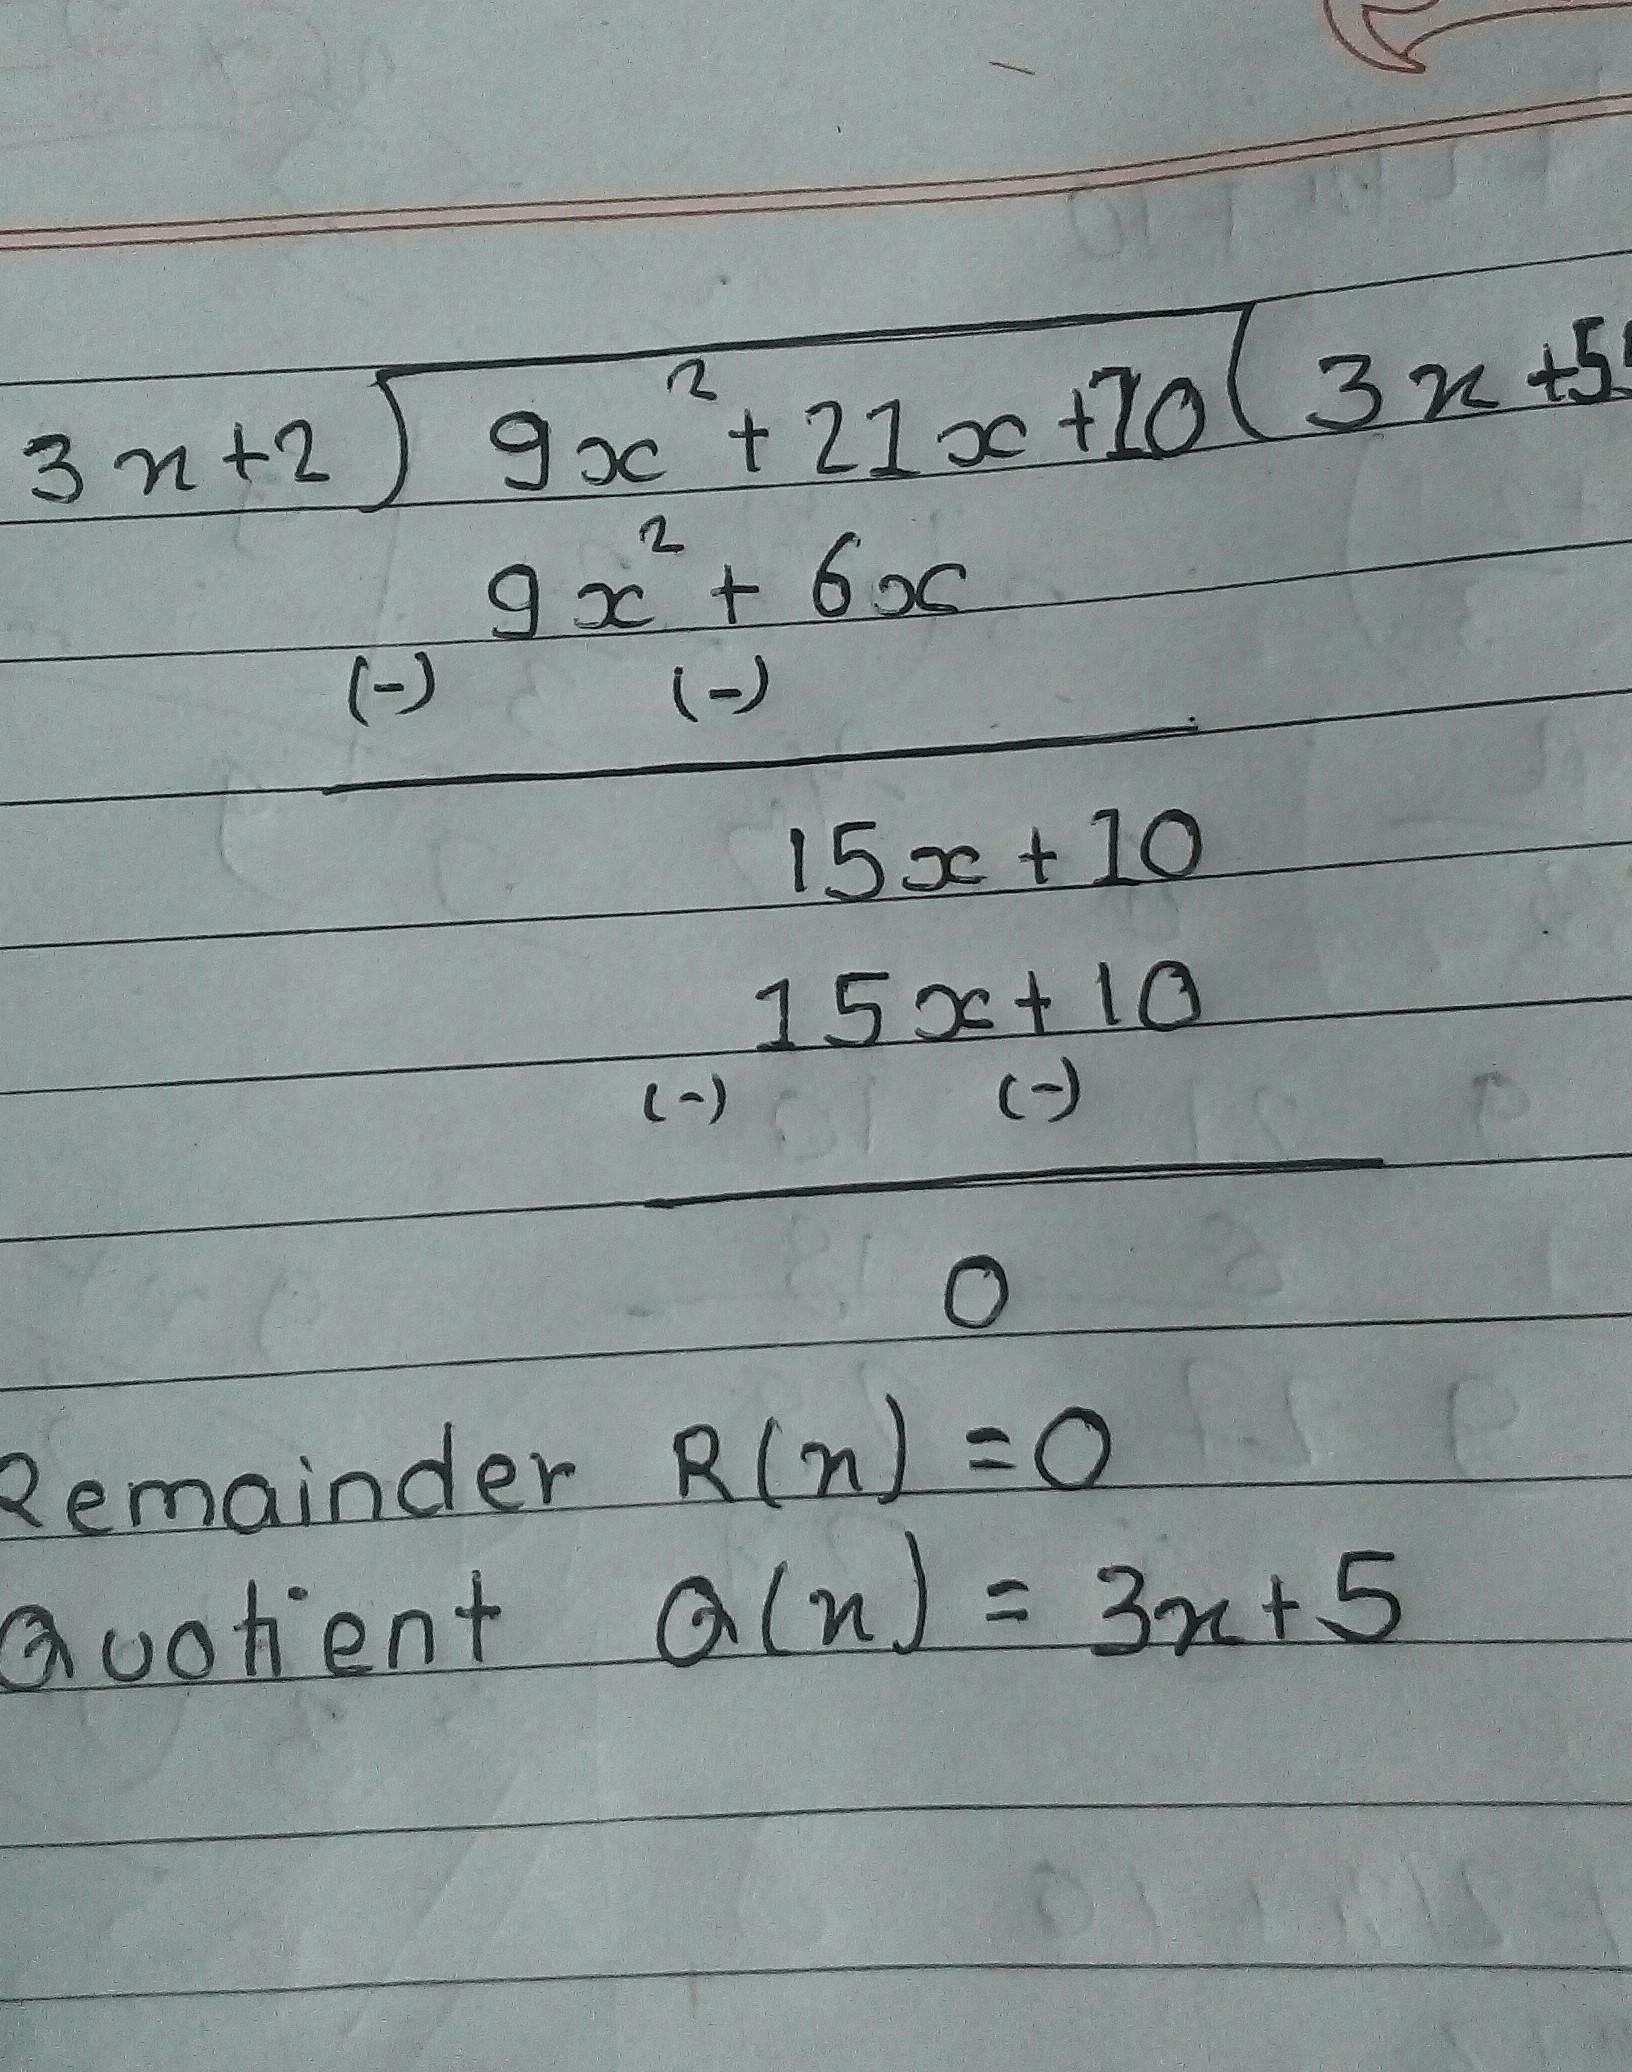 3x+2) 9x²+21x+10(3x+5
9x²+6x
(-) (-)
15x+10
15x+10
(-) (-)
0
Remainder R(x)=0
Quotient Q(x)=3x+5